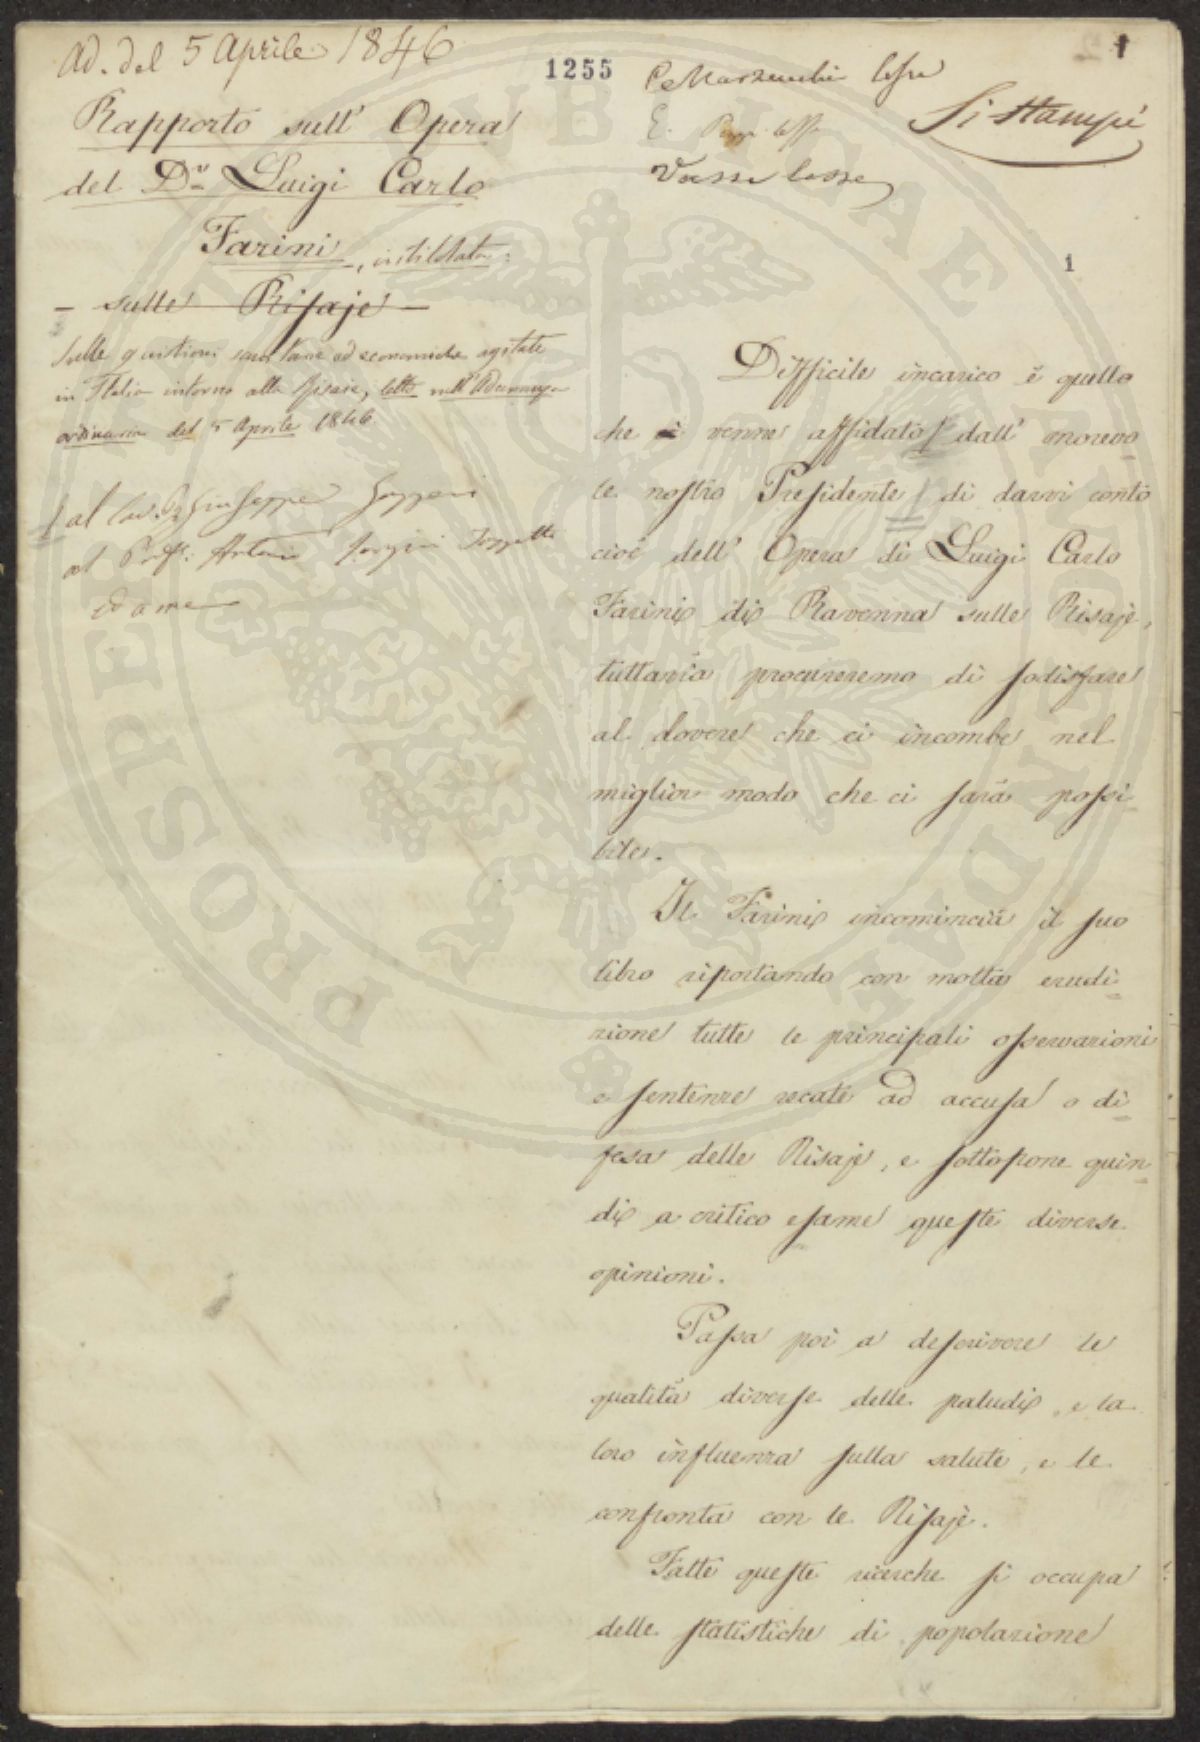 Ad. del 5 Aprile 1846
1255
1
Si Stampi
Rapporto sull' Opera
del Dr. Luigi Carlo
Farini, intitolata:
- sulle Risaje -
sulle quistioni sanitarie ed economiche agitate
in Italia intorno alle Risaie, letto nell'Adunanza
ordinaria del 5 Aprile 1846
al Cav. Giuseppe
al Prof. Antonio Targioni Tozzetti
ed a me
1
Difficile incarico è quello
che ci venne affidato dall' onorevo-
le nostro Presidente di darvi conto
cioè dell' Opera di Luigi Carlo
Farini di Ravenna sulle Risaje,
tuttavia procureremo di sodisfare
al dovere che ci incombe nel
miglior modo che ci sarà possi-
bile.
Il Farini incomincia il suo
libro riportando con molta erudi-
zione tutte le principali osservazioni
e sentenze recate ad accusa o di-
fesa delle Risaje, e sottopone quin-
di a critico esame queste diverse
opinioni.
Passa poi a descrivere le
qualità diverse delle paludi, e la
loro influenza sulla salute, e le
confronta con le Risaje.
Fatte queste ricerche si occupa
delle statistiche di popolazione
PROSPERITATI PUBLICAE AUGENDAE